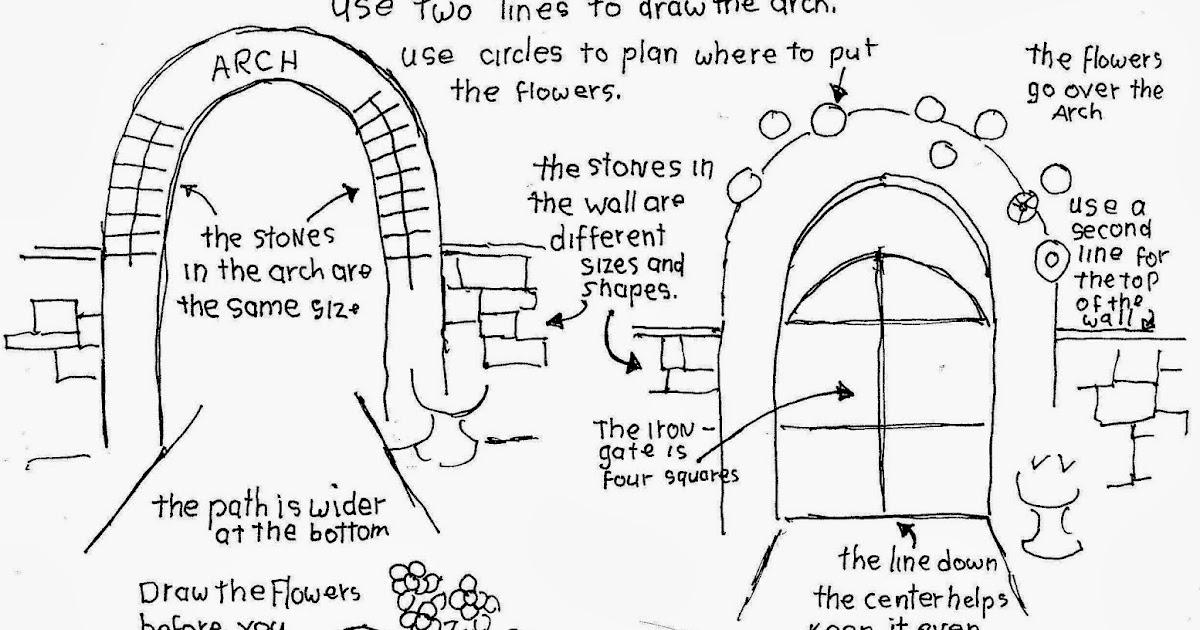 use two lines to draw the arch.
ARCH
use circles to plan where to put
the flowers.
the flowers
go over the
Arch
the stones in
the wall are
different
sizes and
shapes.
the stones
in the arch are
the same size
use a
second
line for
the top
of the
wall
The iron-
gate is
four squares
the path is wider
at the bottom
the line down
the center helps
keep it even
Draw the Flowers
before you